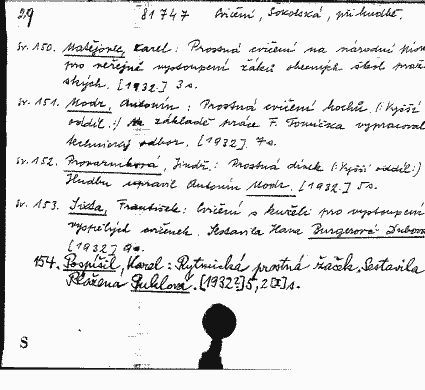 29 81747 Cvičení, Sokolská, při hudbě.
sv. 150. Matějovec, Karel: Prostná cvičení na národní
pro veřejné vystoupení žáků obecných škol praž-
ských. [1932.] 3 s.
sv. 151. Modr, Antonín: Prostná cvičení hochů (:Vyšší
oddíl.:) základě práce F. Tomíčka vypracoval
technický odbor. [1932]. 7 s.
sv. 152. Provazníková, Jindř.: Prostná dívek (:Vyšší oddíl:)
Hudbu upravil Antonín Modr. [1932.] 5 s.
sv. 153. František: Cvičení s kuželi pro vystoupení
vyspělých cvičenek. Sestavila Hana Burgerová
[1932] 9 s.
154. Pospíšil, Karel: Rytmická prostná žaček. Sestavila
Růžena Puklová. [1932?] 5, 2 [I] s.
S